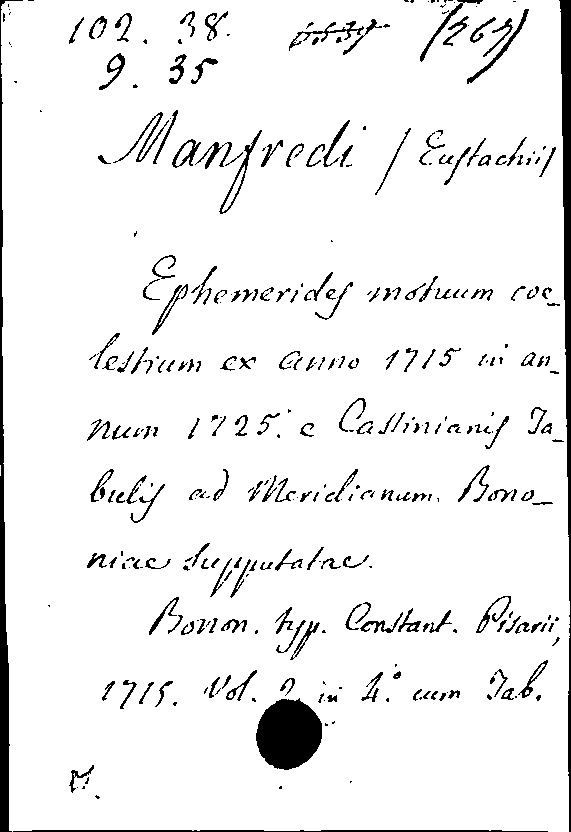 102. 38. (267)
9. 35
Manfredi / Eustachii /
Ephemerides motuum coe_
lestium ex anno 1715 in an_
num 1725. e Cassinianis Ta_
bulis ad Meridianum Bono_
niae supputatae.
Bonon. typ. Constant. Pisarii,
1715. Vol. 2 in 4.° cum Tab.